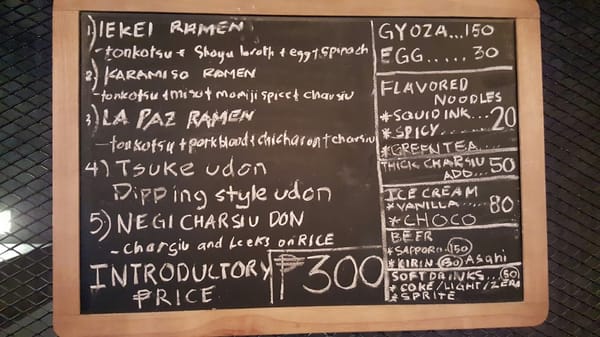 1) IEKEI RAMEN
- tonkotsu + Shoyu broth + egg + spinach
2) KARAMISO RAMEN
- tonkotsu + miso + momiji spice + charsiu
3) LA PAZ RAMEN
- tonkotsu + porkblood + chicharon + charsiu
4) Tsuke udon
Dipping style udon
5) NEGI CHARSIU DON
- charsiu and leeks on RICE
INTRODUCTORY
PRICE
₱300
GYOZA...150
EGG..... 30
FLAVORED
NOODLES
*SQUID INK....
*SPICY..... 20
*GREEN TEA....
THICK CHARSIU
ADD... 50
ICE CREAM
*VANILLA.....
*CHOCO 80
BEER
*SAPPORO 150
*KIRIN 150 Asahi
SOFT DRINKS... 50
*COKE/LIGHT/ZERO
*SPRITE